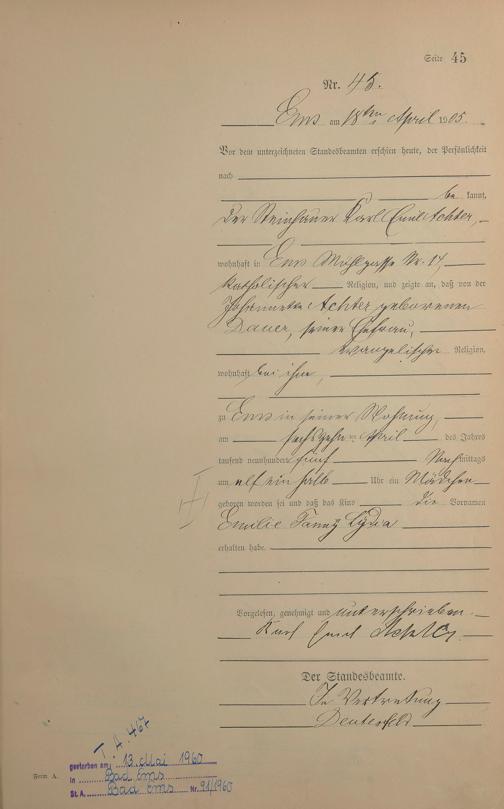 Seite 45
Nr. 45.
Ems am 18ten April 1905.
Vor dem unterzeichneten Standesbeamten erschien heute, der Persönlichkeit
nach
be kannt,
der Steinhauer Karl Emil Achter,
wohnhaft in Ems Mühlgasse Nr. 14,
katholischer Religion, und zeigte an, daß von der
Johannette Achter geborenen
Dauer, seiner Ehefrau,
evangelischer Religion,
wohnhaft bei ihm,
zu Ems in seiner Wohnung,
am sechszehn ten April des Jahres
tausend neunhundert fünf Nachmittags
um elf ein halb Uhr ein Mädchen
geboren worden sei und daß das Kind die Vornamen
Emilie Fanny Lydia
erhalten habe.
Vorgelesen, genehmigt und unterschrieben.
Karl Emil Achter
Der Standesbeamte.
In Vertretung
T. A. 467
gestorben am: 13. Mai 1960
in Bad Ems
St. A. Bad Ems Nr. 91/1960
Form. A.